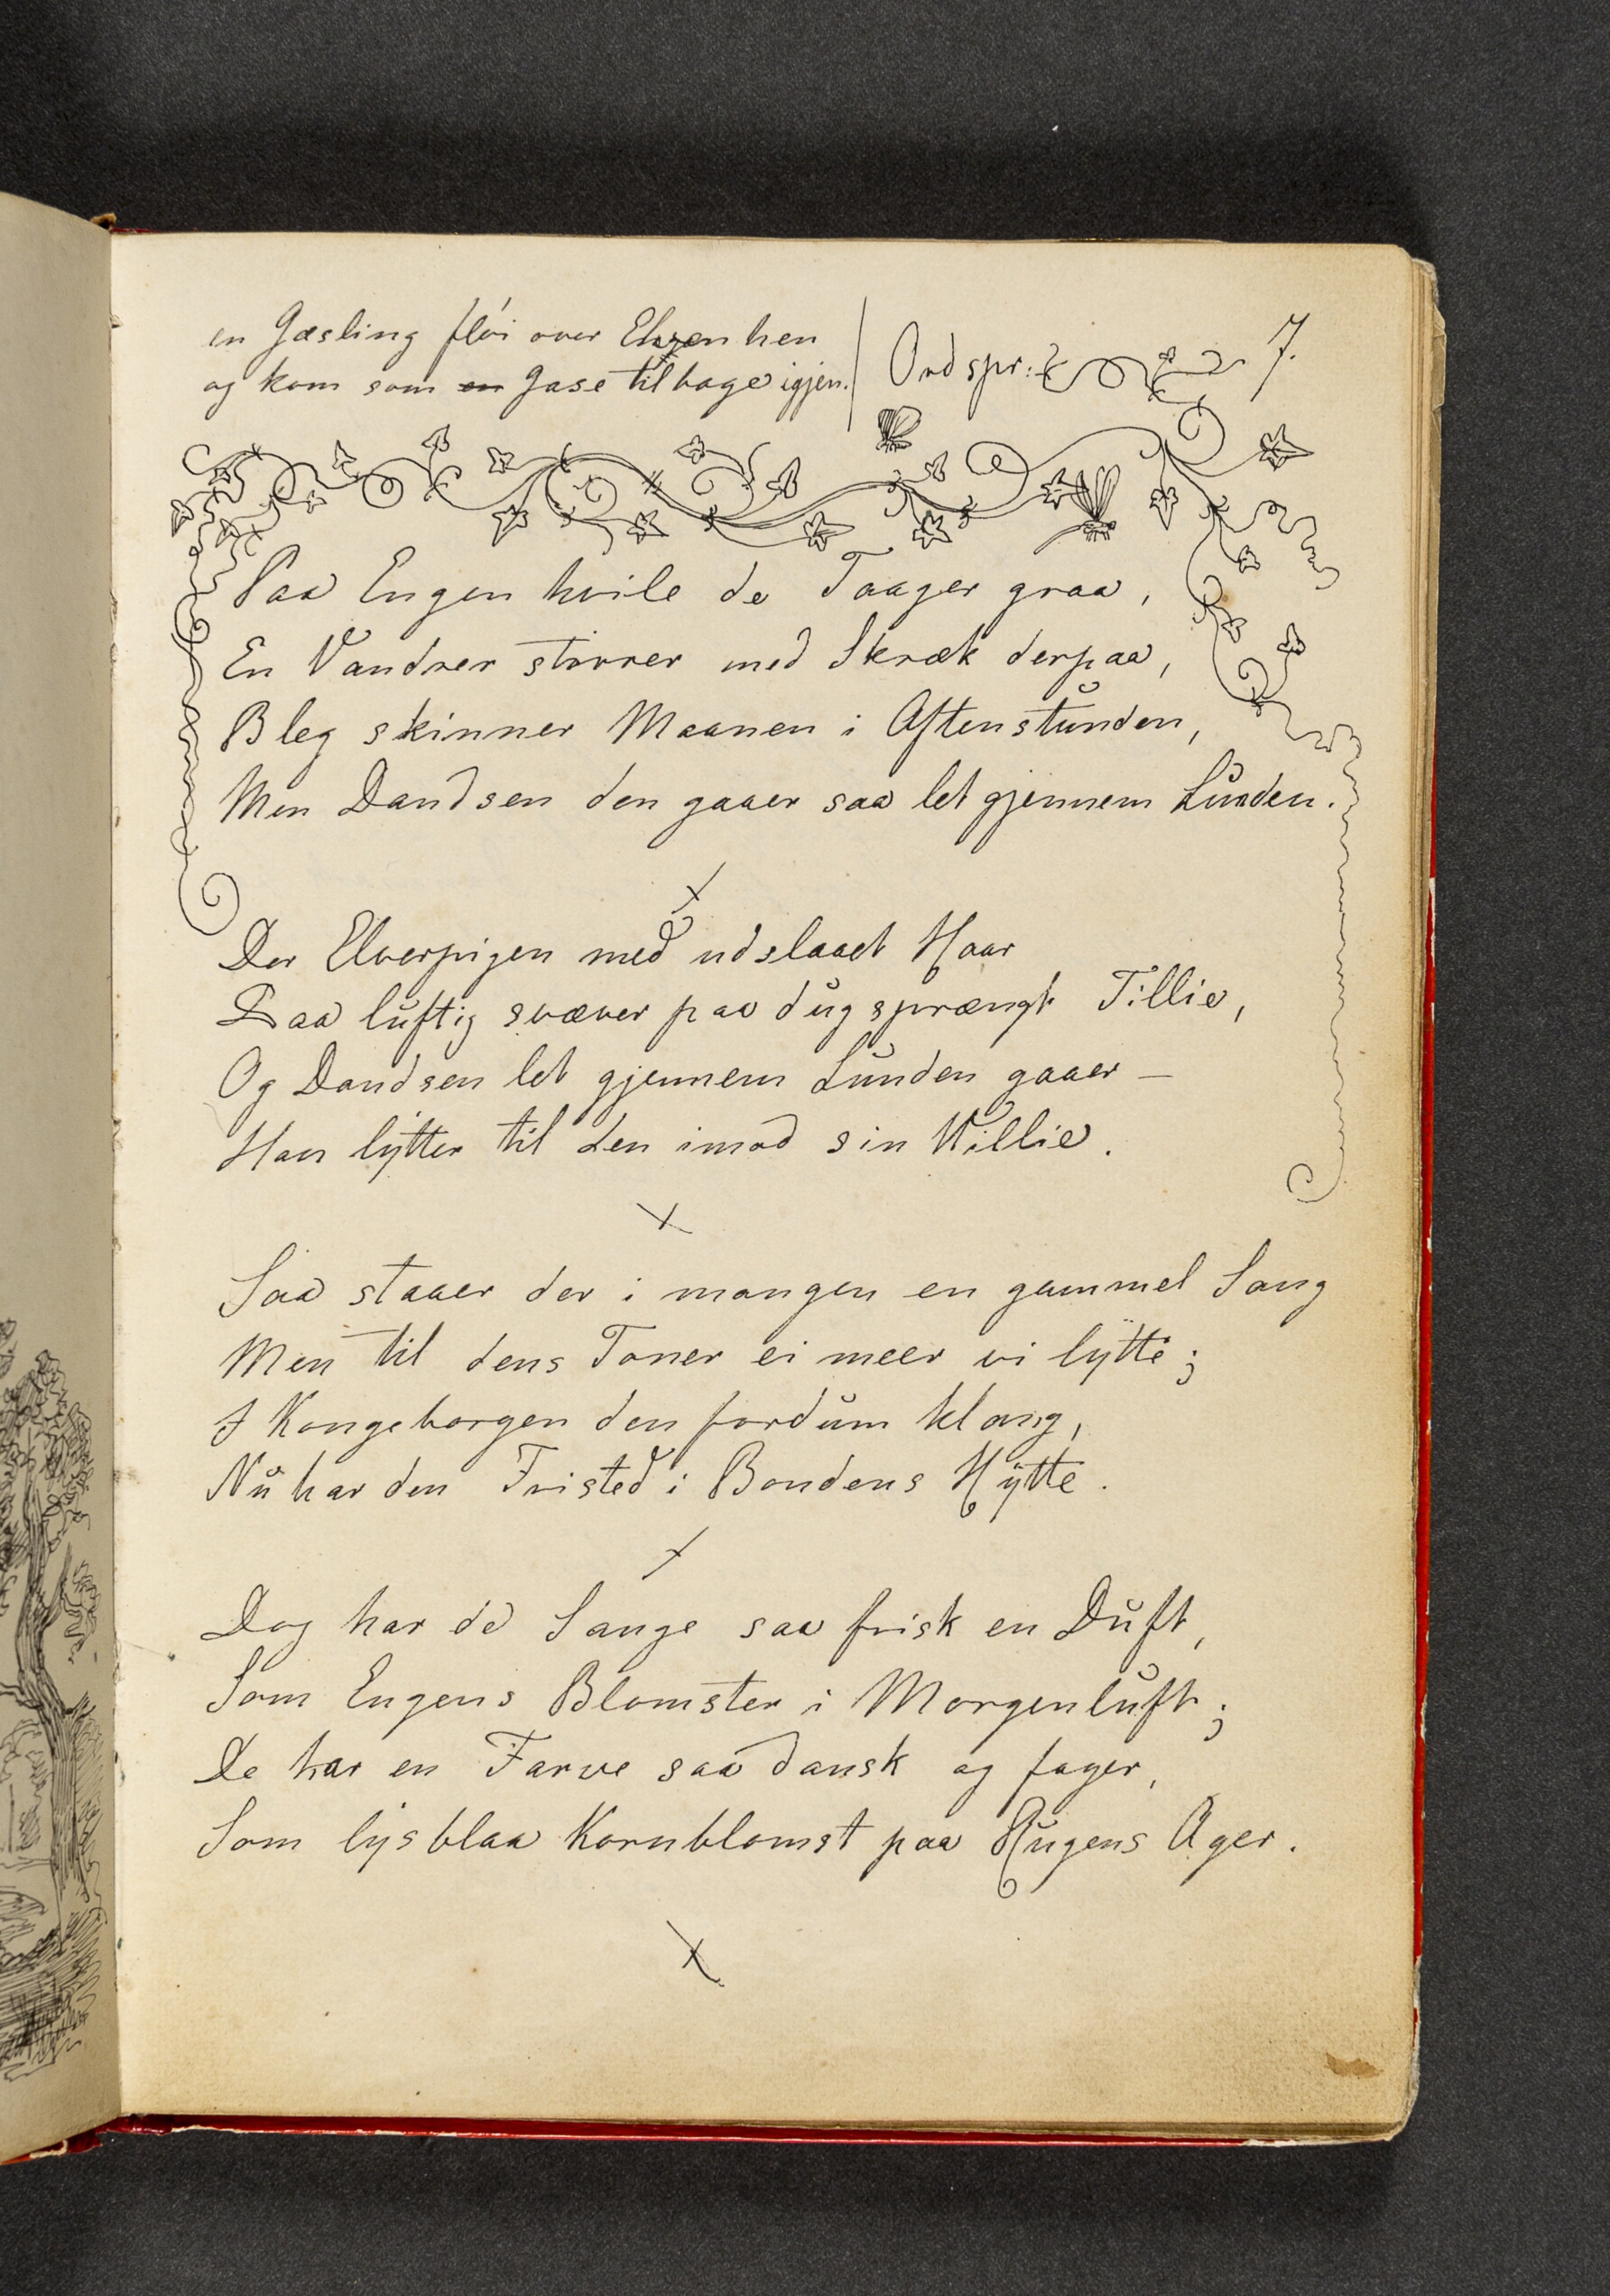 en Gæsling fløi over Engen hen
og kom som en Gase tilbage igjen.
Ordspr:
7.
Paa Engen hvile de Taager graa,
En Vandrer stirrer med Skræk derpaa,
Bleg skinner Maanen i Aftenstunden,
Men Dandsen den gaaer saa let gjennem Lunden.
Der Elverpigen med udslaaet Haar
Saa luftig svæver paa dugsprængt Tillie,
Og Dandsen let gjennem Lunden gaaer –
Han lytter til den imod sin Villie.
Saa staaer der i mangen en gammel Sang
Men til dens Toner ei meer vi lytte;
I Kongeborgen den fordum klang,
Nu har den Fristed i Bondens Hytte.
Dog har de Sange saa frisk en Duft,
Som Engens Blomster i Morgenluft;
De har en Farve saa dansk og fager,
Som lysblaa Kornblomst paa Rugens Ager.